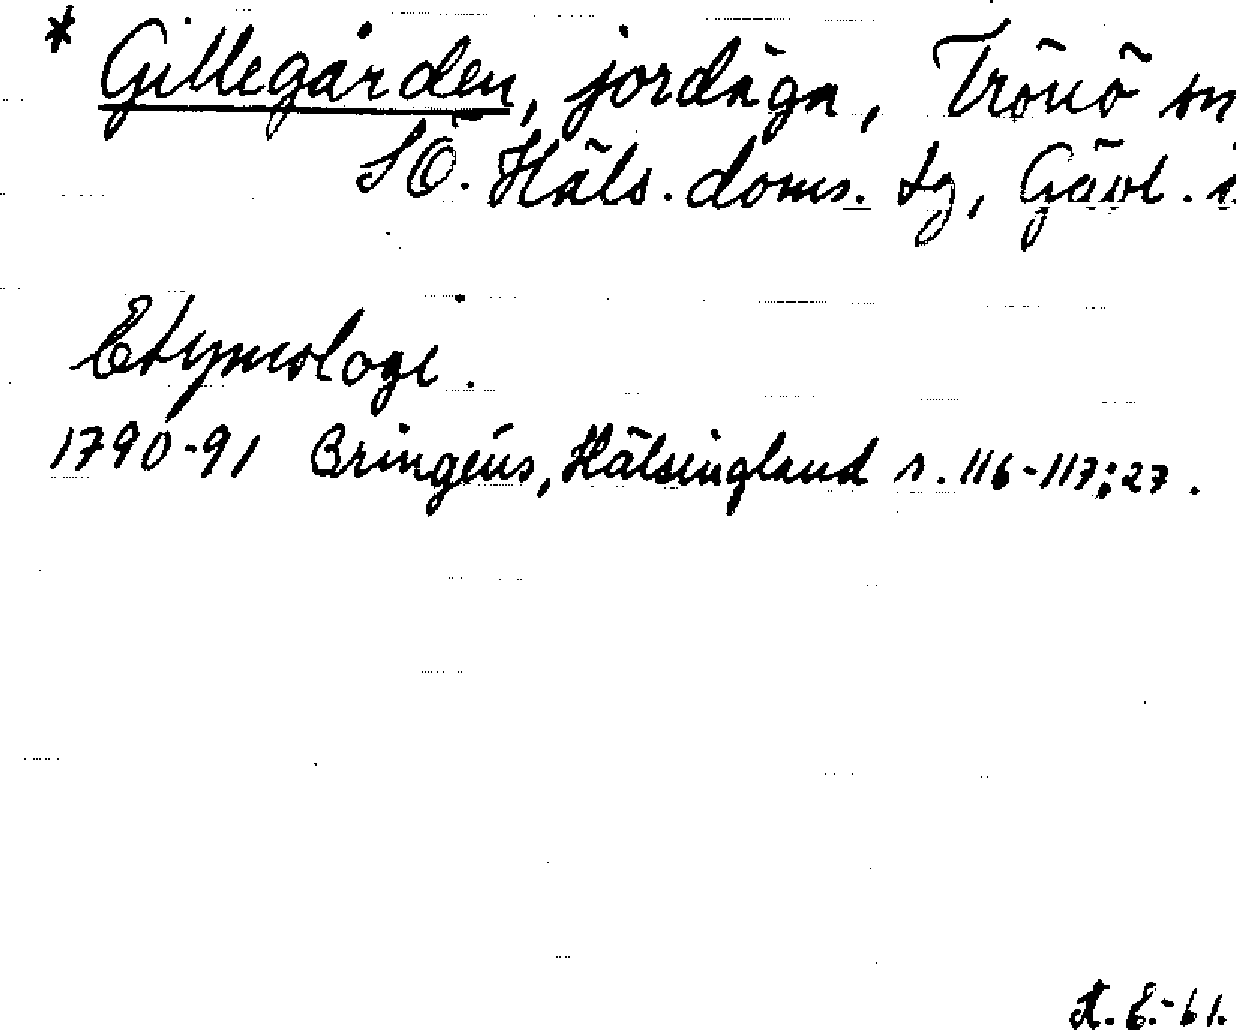 * Gillegården, jordäga, Trönö sn
SÖ. Häls. doms. tg, Gävl.
Etymologi.
1790-91 Bringéus, Hälsingland s. 116-117; 27.
A. E.-61.